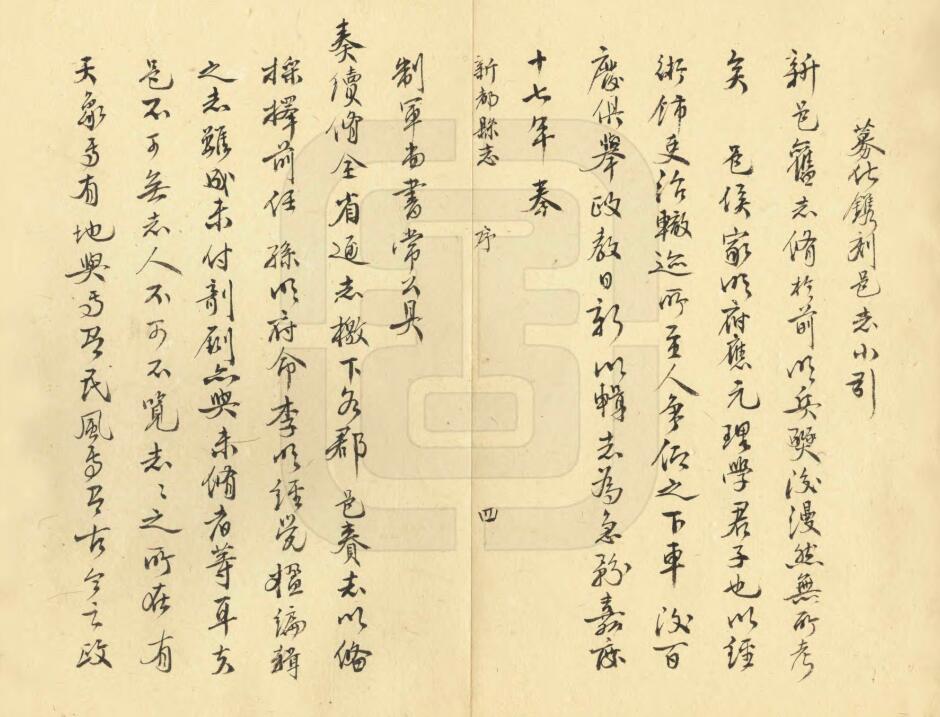 募化鐫刻邑志小引
新邑舊志脩於前明兵燹後漫然無所考
矣 邑侯家明府應元理學君子也以經
術飾吏治轍迹所至人爭仰之下車後百
廢俱舉政教日新以輯志為急務嘉慶
十七年 奉
新都縣志 序 四
制軍尚書常公具
奏續脩全省通志檄下各郡邑賫志以備
採擇前任 孫明府命李明經覺樞編輯
之志雖成未付剞劂與未脩者等耳夫
邑不可無志人不可不覽志〻之所在有
天象焉有地輿焉吾民風焉吾古今之政